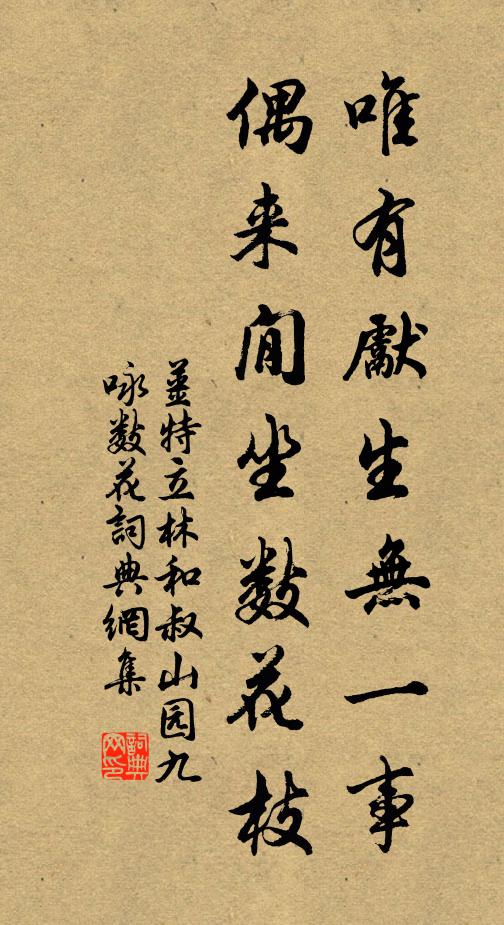 唯有獻生無一事
偶来閒坐數花枝
姜特立林和叔山园九
咏數花詞典網集
詞典
网印